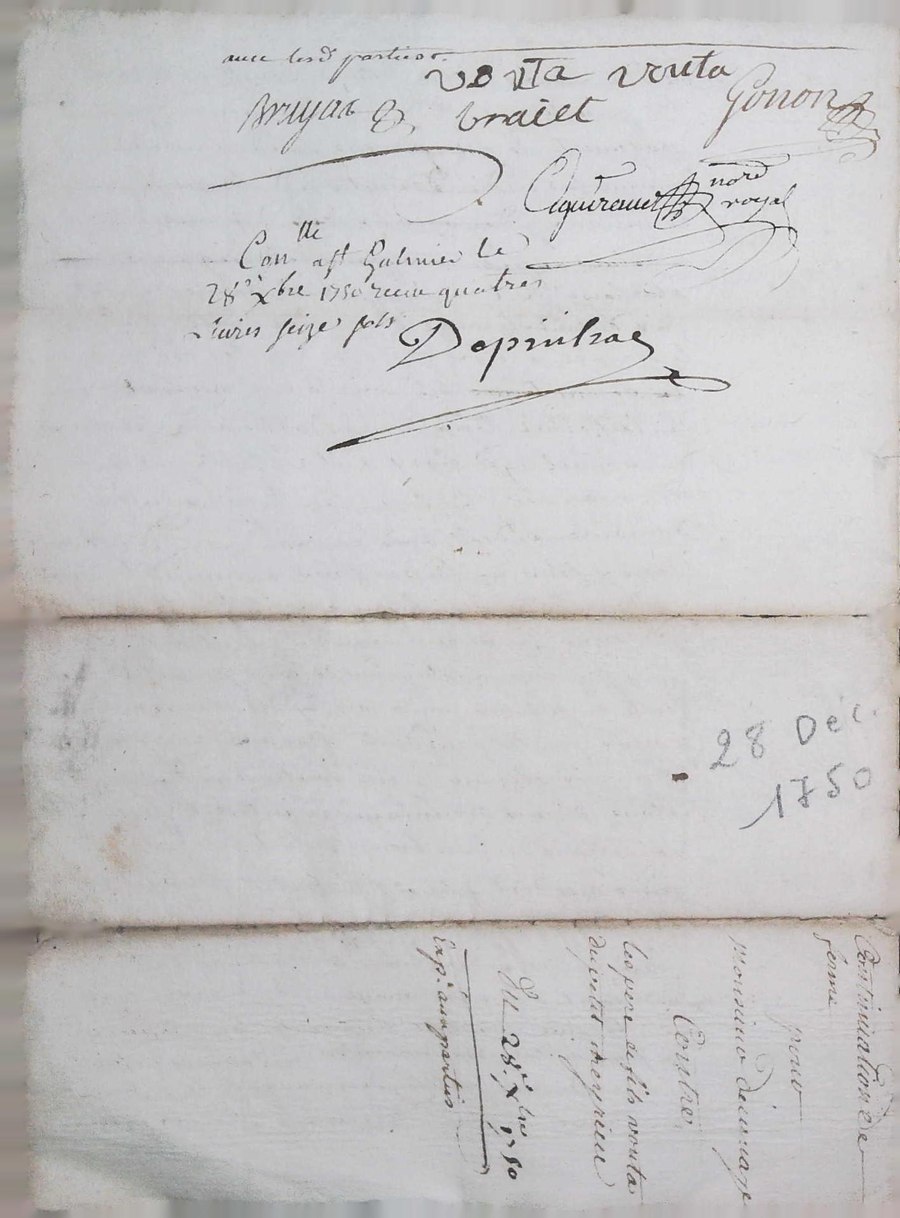 avec lesd parties
vouta vouta
Bruyas & braiet Gonon
nore
royal
Conlle a St Galmier le
28e Xbre 1750 receu quatres
Livres seize sols
28 Déc.
1750
Continuation de
ferme
pour
monsieur
Contre
Les pere et fils vouta
du petit
Du 28e Xbre 1750
Exp. aux parties